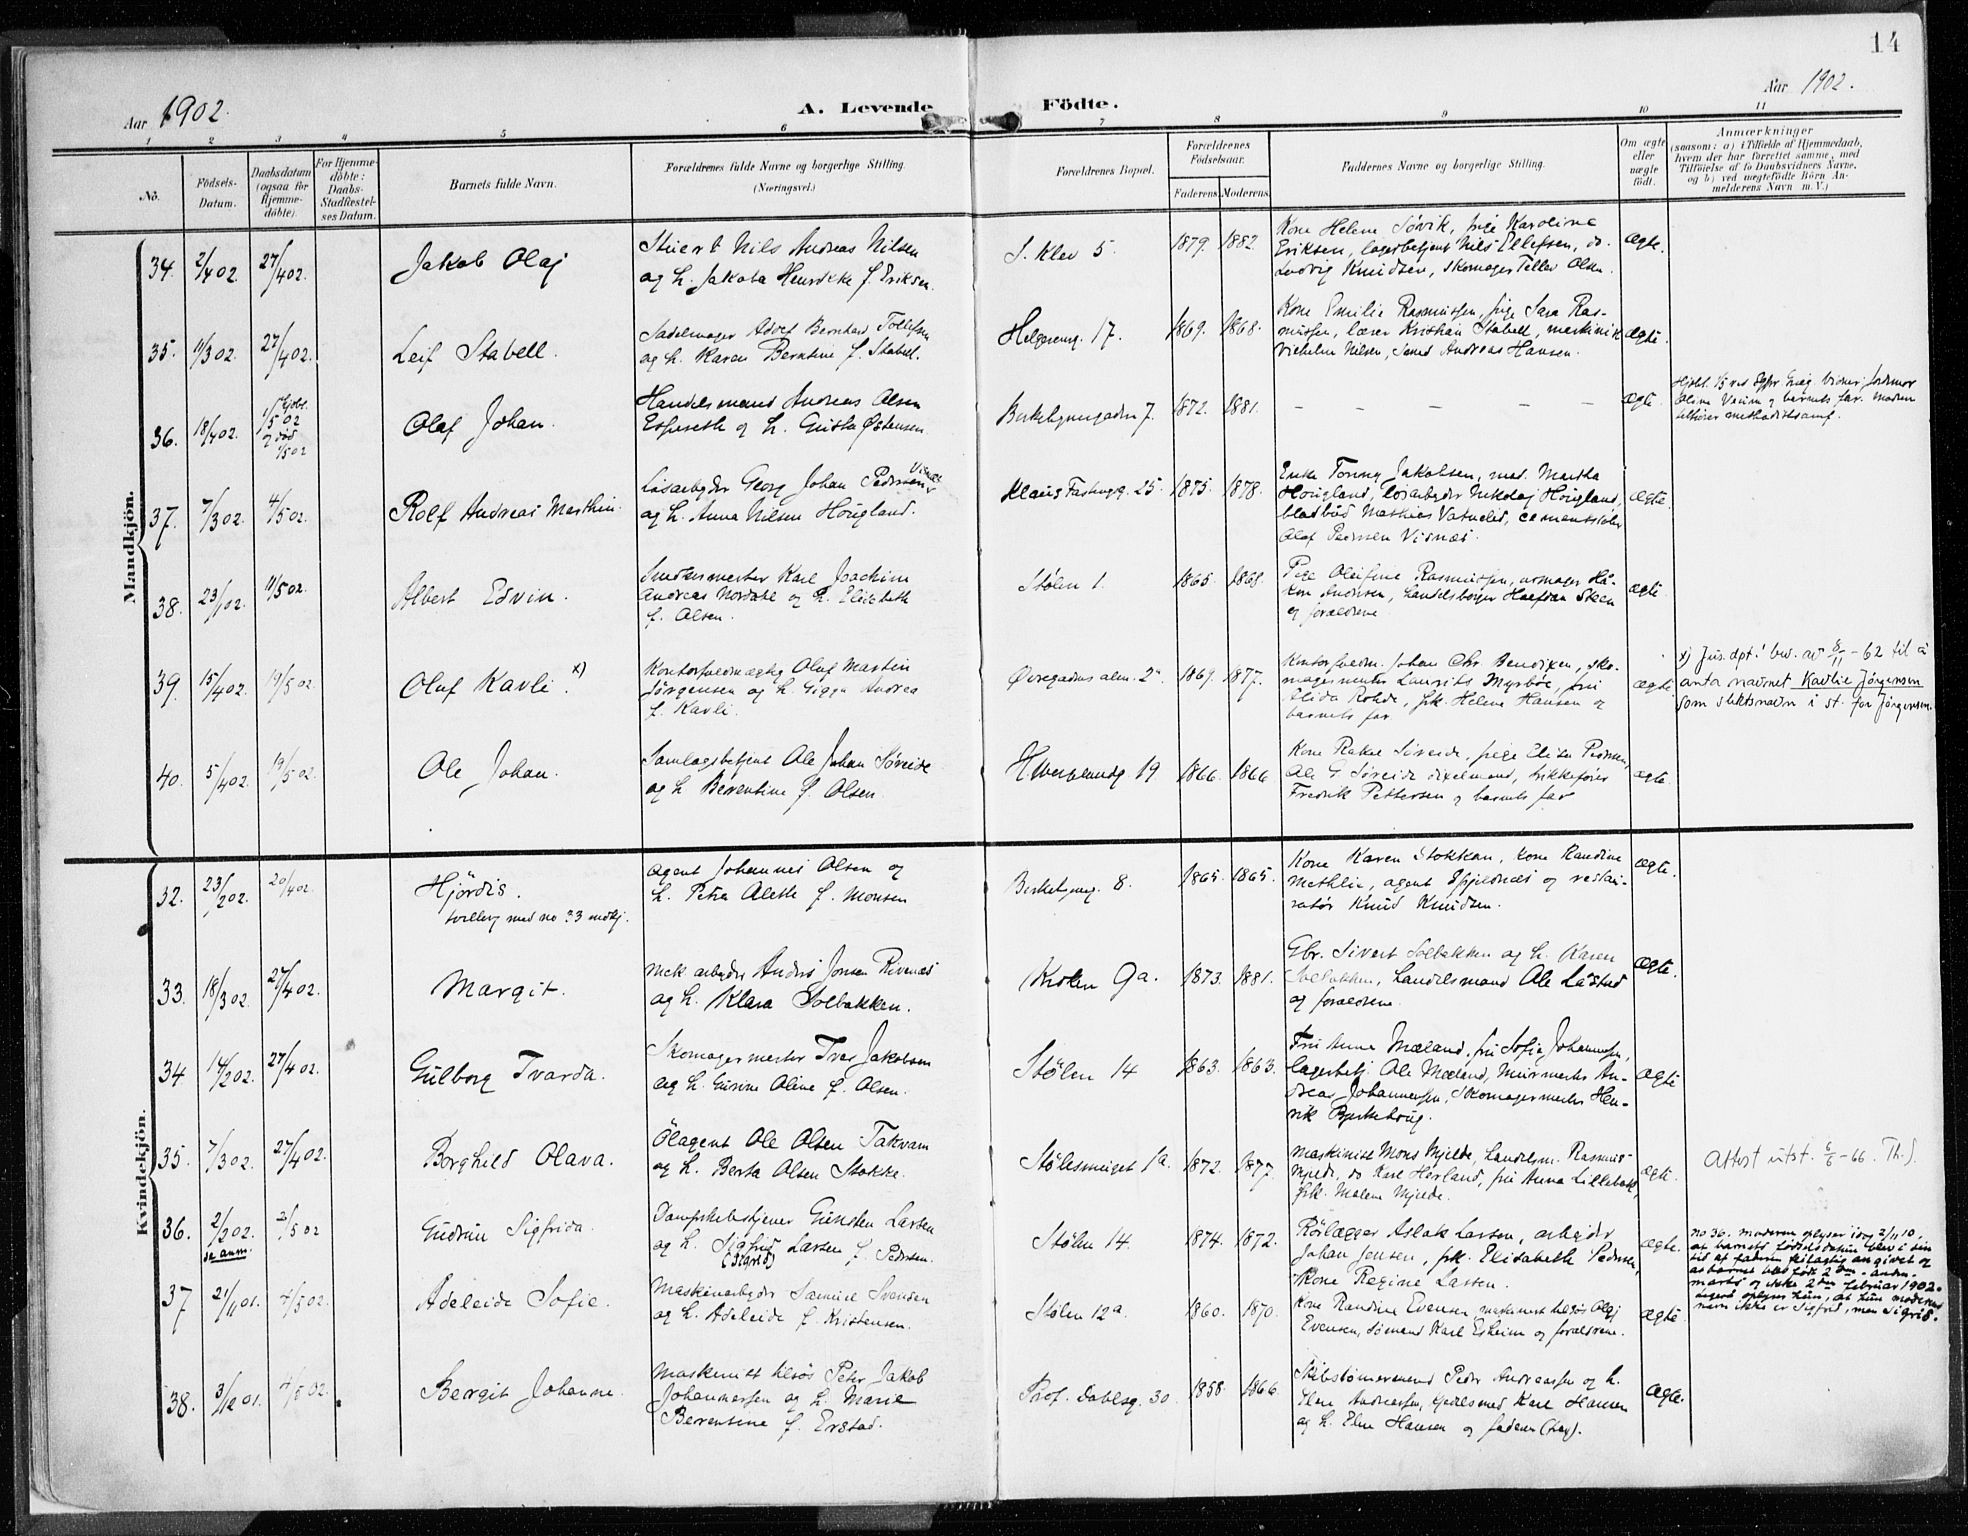 14
Aar 1902.
A. Levende Födte.
Aar 1902.
1 2 3 4 5 6 7 8 9 10 11
No.
Födsels-Datum.
Daabsdatum (ogsaa for Hjemmedöbte).
For Hjemmedöbte: Daabs-Stadfæstelses Datum.
Barnets fulde Navn.
Forældrenes fulde Navne og borgerlige Stilling. (Næringsvei.)
Forældrenes Bopæl.
Forældrenes Födselsaar.
Faderens. Moderens.
Faddernes Navne og borgerlige Stilling.
Om ægte eller uægte födt.
Anmærkninger
(saasom: a) i Tilfælde af Hjemmedaab, hvem der har forrettet samme, med Tilföielse af to Daabsvidners Navne, og b) ved uægtefödte Börn Anmelderens Navn m. V.)
Mandkjön.
34. 2/4 02. 27/4 02. Jakob Olaj
Nils Andreas Nilsen
og h. Jakoba f. Eriksen.
S. Klev 5. 1879. 1882.
Kone Helene Søvik, pige Karoline
Eriksen, lagerbetjent Nils Ellefsen, do.
Ludvig Knudsen, skomager Tellev Olsen.
Ægte.
35. 11/3 02. 27/4 02. Leif Stabell.
Sadelmager Adolf Bernhard Tollefsen
og h. Karen Berntine f. Stabel.
17. 1869. 1868.
Kone Emilie Rasmussen, pige Sara Rasmussen, lærer Kristian Stabell, maskinist
Vilhelm Nilsen, Smed Andreas Hansen.
Ægte.
36. 18/4 02. 1/5 02 død Olaf Johan.
Handelsmand Andreas Olsen
Espeseth og h. Gusta Østensen.
Birkelyngaden 7. 1872. 1881.
– – – – –
Ægte.
og barnets far. Moder
tilhører methodistsamf.
37. 7/3 02. 4/5 02. Rolf Andreas Marthin.
Løsarbeider Georg Johan Pedersen Visnæs
og h. Anna Nilsen Hougland.
25. 1875. 1878.
Enke Tonny Jakobsen, mad. Martha
Hougland, løsarbeider Nikolaj Hougland,
bladbud Mathias Vatnelid, cementstøber
Olaf Pedersen Visnæs.
Ægte.
38. 23/1 02. 11/5 02. Albert Edvin.
Snedkermester Karl Joachim
Andreas Nordahl og h. Elisabeth
f. Olsen.
Stølen 1. 1865. 1868.
Pige Olufine Rasmussen, urmager Håkon Andersen, handelsborger Halfdan Steen
og forældrene
Ægte.
39. 15/4 02. 19/5 02. Oluf Kavli. x)
Kontorfuldmægtig Oluf Martin
Jørgensen og h. Andrea
f. Kavli.
Øvregadens alm. 2a 1869. 1877.
Kontorfuldm. Johan Chr. Bendixen, skomagermester Laurits Myrbøe, fru
Alida Rohde, frk. Helene Hansen og
barnets far
Ægte
x) Jus. dpt.' bev. av 8/11 - 62 til å
anta navnet Kavlie Jørgensen
som slektsnavn i st. for Jørgensen.
40. 5/4 02. 19/5 02. Ole Johan.
Samlagsbetjent Ole Johan Søreide
og h. Berentine f. Olsen.
H. Wergelandsg 19 1866. 1866
Kone Rakel Søreide, pige Elisa Pedersen,
Ole G. Søreide,
Fredrik Pettersen og barnets far
Ægte.
Kvindekjön.
32. 23/2 02. 20/4 02. Hjördis.
tvilling med no 33 mdkj.
Agent Johannes Olsen og
h. Petra Alethe f. Monsen
8. 1865. 1865.
Kone Karen Stokkan, Kone Randine
Methlie, agent og restauratør Knud Knudsen.
Ægte.
33. 18/3 02. 27/4 02. Margit.
Mek arbeider Anders Jonsen Rivenæs
og h. Klara Solbakken.
9a. 1873. 1881.
Gbr. Sivert Solbakken og h. Karen
Solbakken, handelsmand Ole Låstad
og forældrene.
Ægte.
34 14/2 02. 27/4 02. Gulborg Tvarda.
Skomagermester Iver Jakobsen
og h. Gurine Oline f. Olsen.
Stølen 14 1863. 1863.
Fru Anna Mæland, fru Sofie Johannesen,
lagerbetj. Ole Mæland, Murmester Andreas Johannessen, Skomagermester Henrik
Ægte
35. 7/3 02. 27/4 02. Borghild Olava.
Ölagent Ole Olsen Takvam
og h. Berta Olsen Stokke.
Stølesmuget 1a. 1872. 1877.
Maskinist Mons Mjelde, handelsm. Rasmus
Mjelde, do Karl Herland, fru Anna Lillebakk,
frk. Malene Mjelde.
Ægte.
Attest utst. 6/6 - 66. Th. J.
36. 2/2 02. se anm. 2/5 02 Gudrun Sigfrida.
Dampskibsbetjener Gunsten Larsen
og h. Sigfrid (Sigrid) Larsen f. Pedersen.
Stølen 14. 1874. 1872.
Rørlægger Aslak Larsen, arbeider
Johan Jensen, frk. Elisabeth Pedersen,
Kone Regine Larsen.
Ægte.
No 36. moderen oplyser idag 2/11 10,
at barnets fødselsdatum blev i sin
tid af faderen feilagtig angivet og
at barnet blev født 2den - anden -
marts og ikke 2den februar 1902.
Ligeså oplyser hun, at hun moderens
navn ikke er Sigfrid, men Sigrid.
37 21/11 01. 4/5 02. Adeleide Sofie.
Maskinarbeider Samuel Svendsen
og h. Adeleide f. Kristensen.
Stølen 12a. 1860. 1870.
Kone Randine Evensen, maskinist tilsøs Olaj
Evensen, sømand Karl Esheim og forældrene.
Ægte
38. 3/12 01. 4/5 02. Bergit Johanne.
Maskinist tilsøs Peter Jakob
Johannessen og h. Marie
Berentine f. Erstad.
Prof. Dahlsg. 30 1858. 1866.
Skibstømmermand Peder Andreassen og h.
Andreassen, Karl Hansen
og h. Elen Hansen og faderen
Ægte.